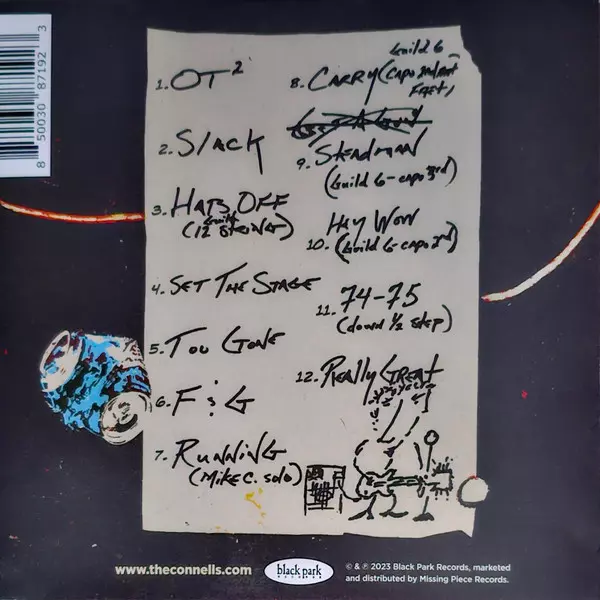 8 50030 87192 3
1. OT²
2. SLACK
3. HATS OFF
Guild
(12 STRING)
4. SET THE STAGE
5. TOO GONE
6. F & G
7. RUNNING
(MIKE C. solo)
Guild 6
8. CARRY (CAPO 2nd
FRET)
9. STEADMAN
(Guild 6-capo 3rd)
HEY WOW
10. (Guild 6-capo
11. 74-75
(down 1/2 step)
12. REALLY GREAT
www.theconnells.com
black park
RECORDS
© & ℗ 2023 Black Park Records, marketed
and distributed by Missing Piece Records.